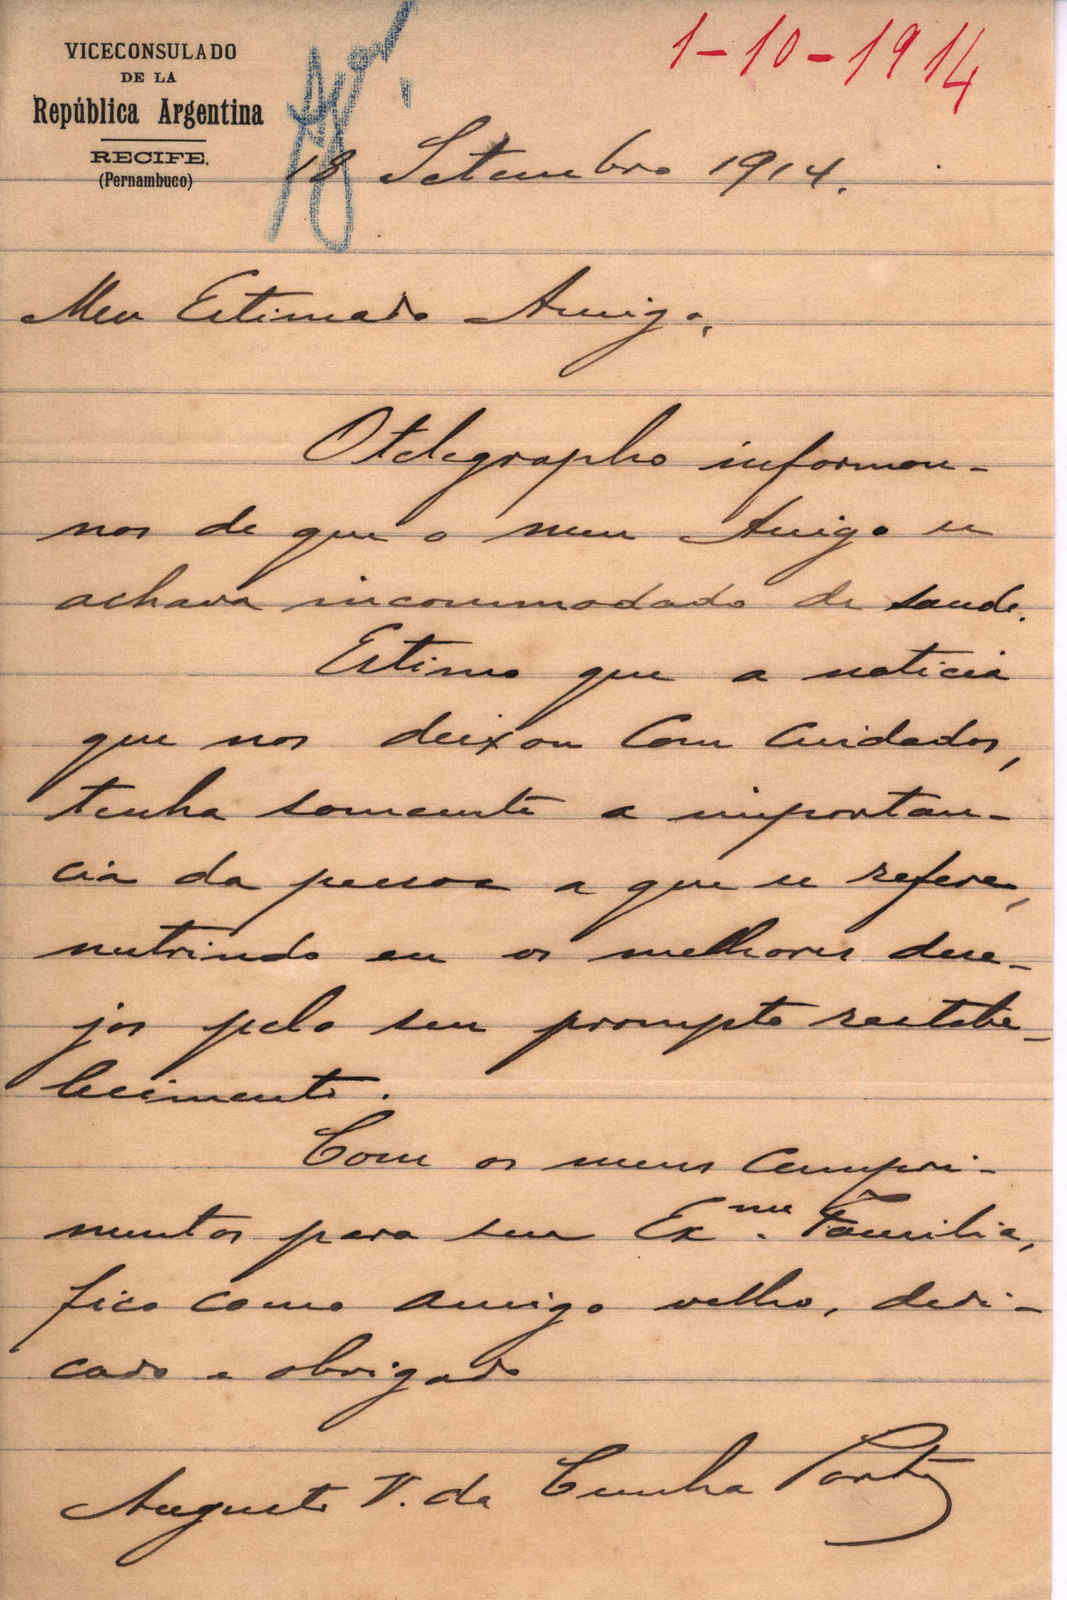 VICECONSULADO
DE LA
República Argentina
RECIFE.
(Pernambuco)
1-10-1914
18 Setembro 1914.
Meu Estimado Amigo,
O telegrapho informou-
nos de que o meu Amigo se
achava incommodado de saude.
Estimo que a noticia
que nos deixou com cuidados,
tenha somente a importan-
cia da pessoa a que se refere,
nutrindo eu os melhores dese-
jos pelo seu prompto restabe-
lecimento.
Com os meus cumpri-
mentos para sua Exma. Familia,
fico como amigo velho, dedi-
cado e obrigado
Augusto V. da Cunha Porto